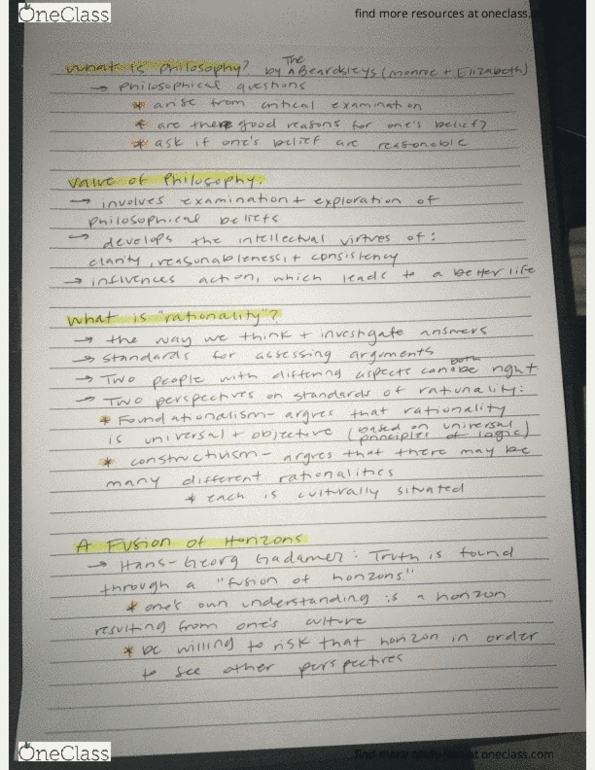 OneClass
find more resources at oneclass.
The
What is Philosophy? by ^ Beardsleys (monroe + Elizabeth)
→ Philosophical questions
* arise from critical examination
* are there good reasons for one's belief?
* ask if one's belief are reasonable
Value of Philosophy:
→ involves examination + exploration of
Philosophical beliefs
→ develops the intellectual virtues of:
clarity, reasonableness, + consistency
→ influences action, which leads to a better life
What is "rationality"?
→ the way we think + investigate answers
→ standards for assessing arguments
both
→ Two people with differing aspects can ^ be right
→ Two perspectives on standards of rationality:
* Foundationalism - argues that rationality
is universal + objective (based on universal
principles of logic)
* constructivism - argues that there may be
many different rationalities
* each is culturally situated
A Fusion of Horizons
→ Hans-Georg Gadamer: Truth is found
through a "fusion of horizons"
* one's own understanding is a horizon
resulting from one's culture
* be willing to risk that horizon in order
to see other perspectives
OneClass
find more resources at oneclass.com